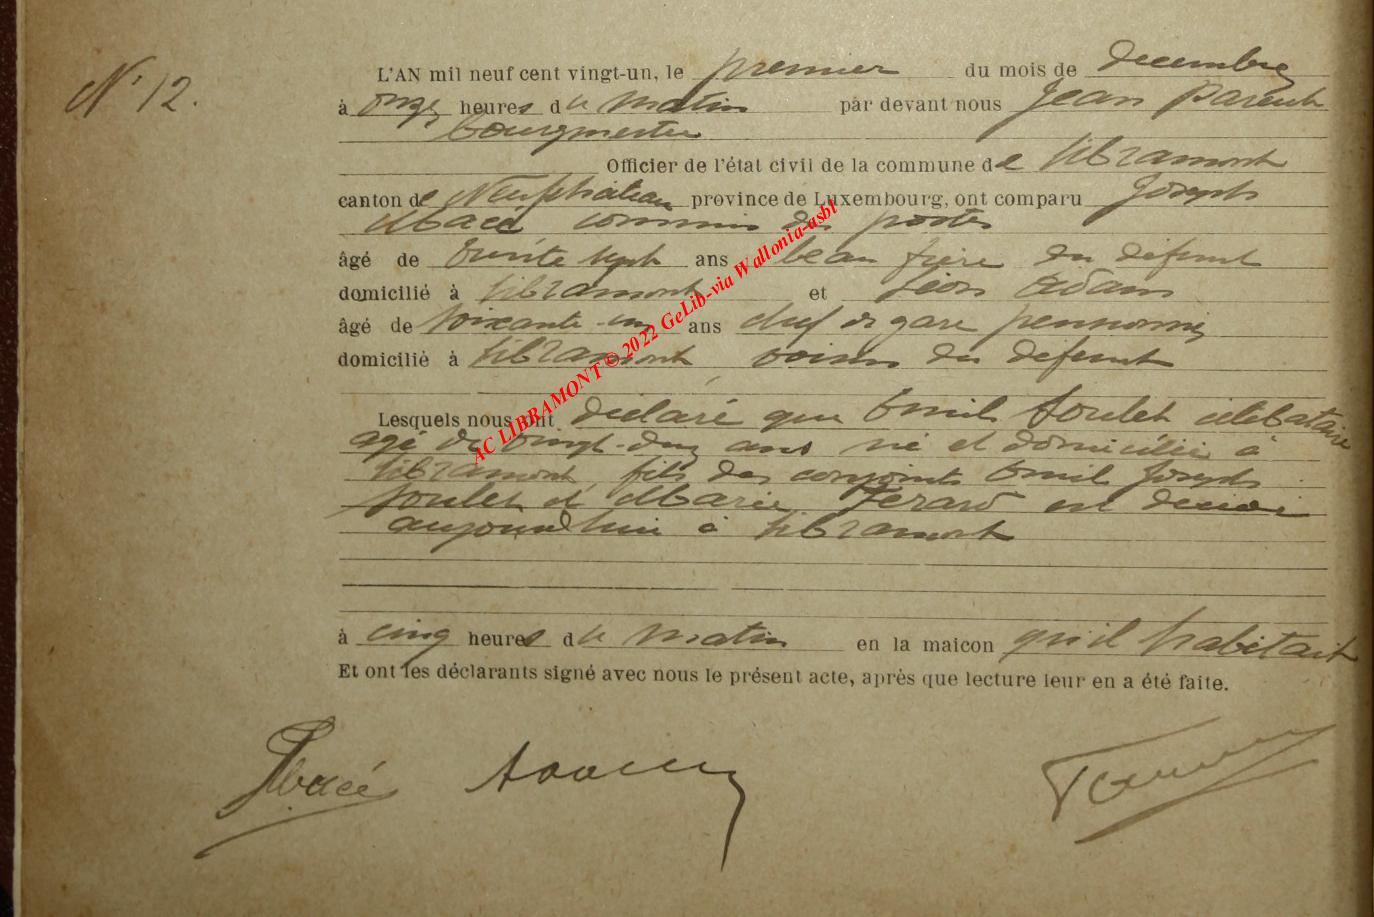 N° 12.
L'AN mil neuf cent vingt-un, le premier du mois de decembre
à onze heures du matin par devant nous Jean Parent
bourgmestre
Officier de l'état civil de la commune de Libramont
canton de Neufchateau province de Luxembourg, ont comparu Joseph
Macé commis des postes
âgé de trente sept ans beau frère du défunt
domicilié à Libramont et Léon Adam
âgé de soixante-un ans chef de gare pensionné
domicilié à Libramont voisin du defunt
Lesquels nous ont déclaré que Emile célibataire
agé de vingt-deux ans né et domicilié à
Libramont, fils des conjoints Emile Joseph
et Marie est décédé
aujourd'hui à Libramont
à cinq heures du matin en la maicon qu'il habitait
Et ont les déclarants signé avec nous le présent acte, après que lecture leur en a été faite.
AC LIBRAMONT © 2022 GeLib-via Wallonia-asbl